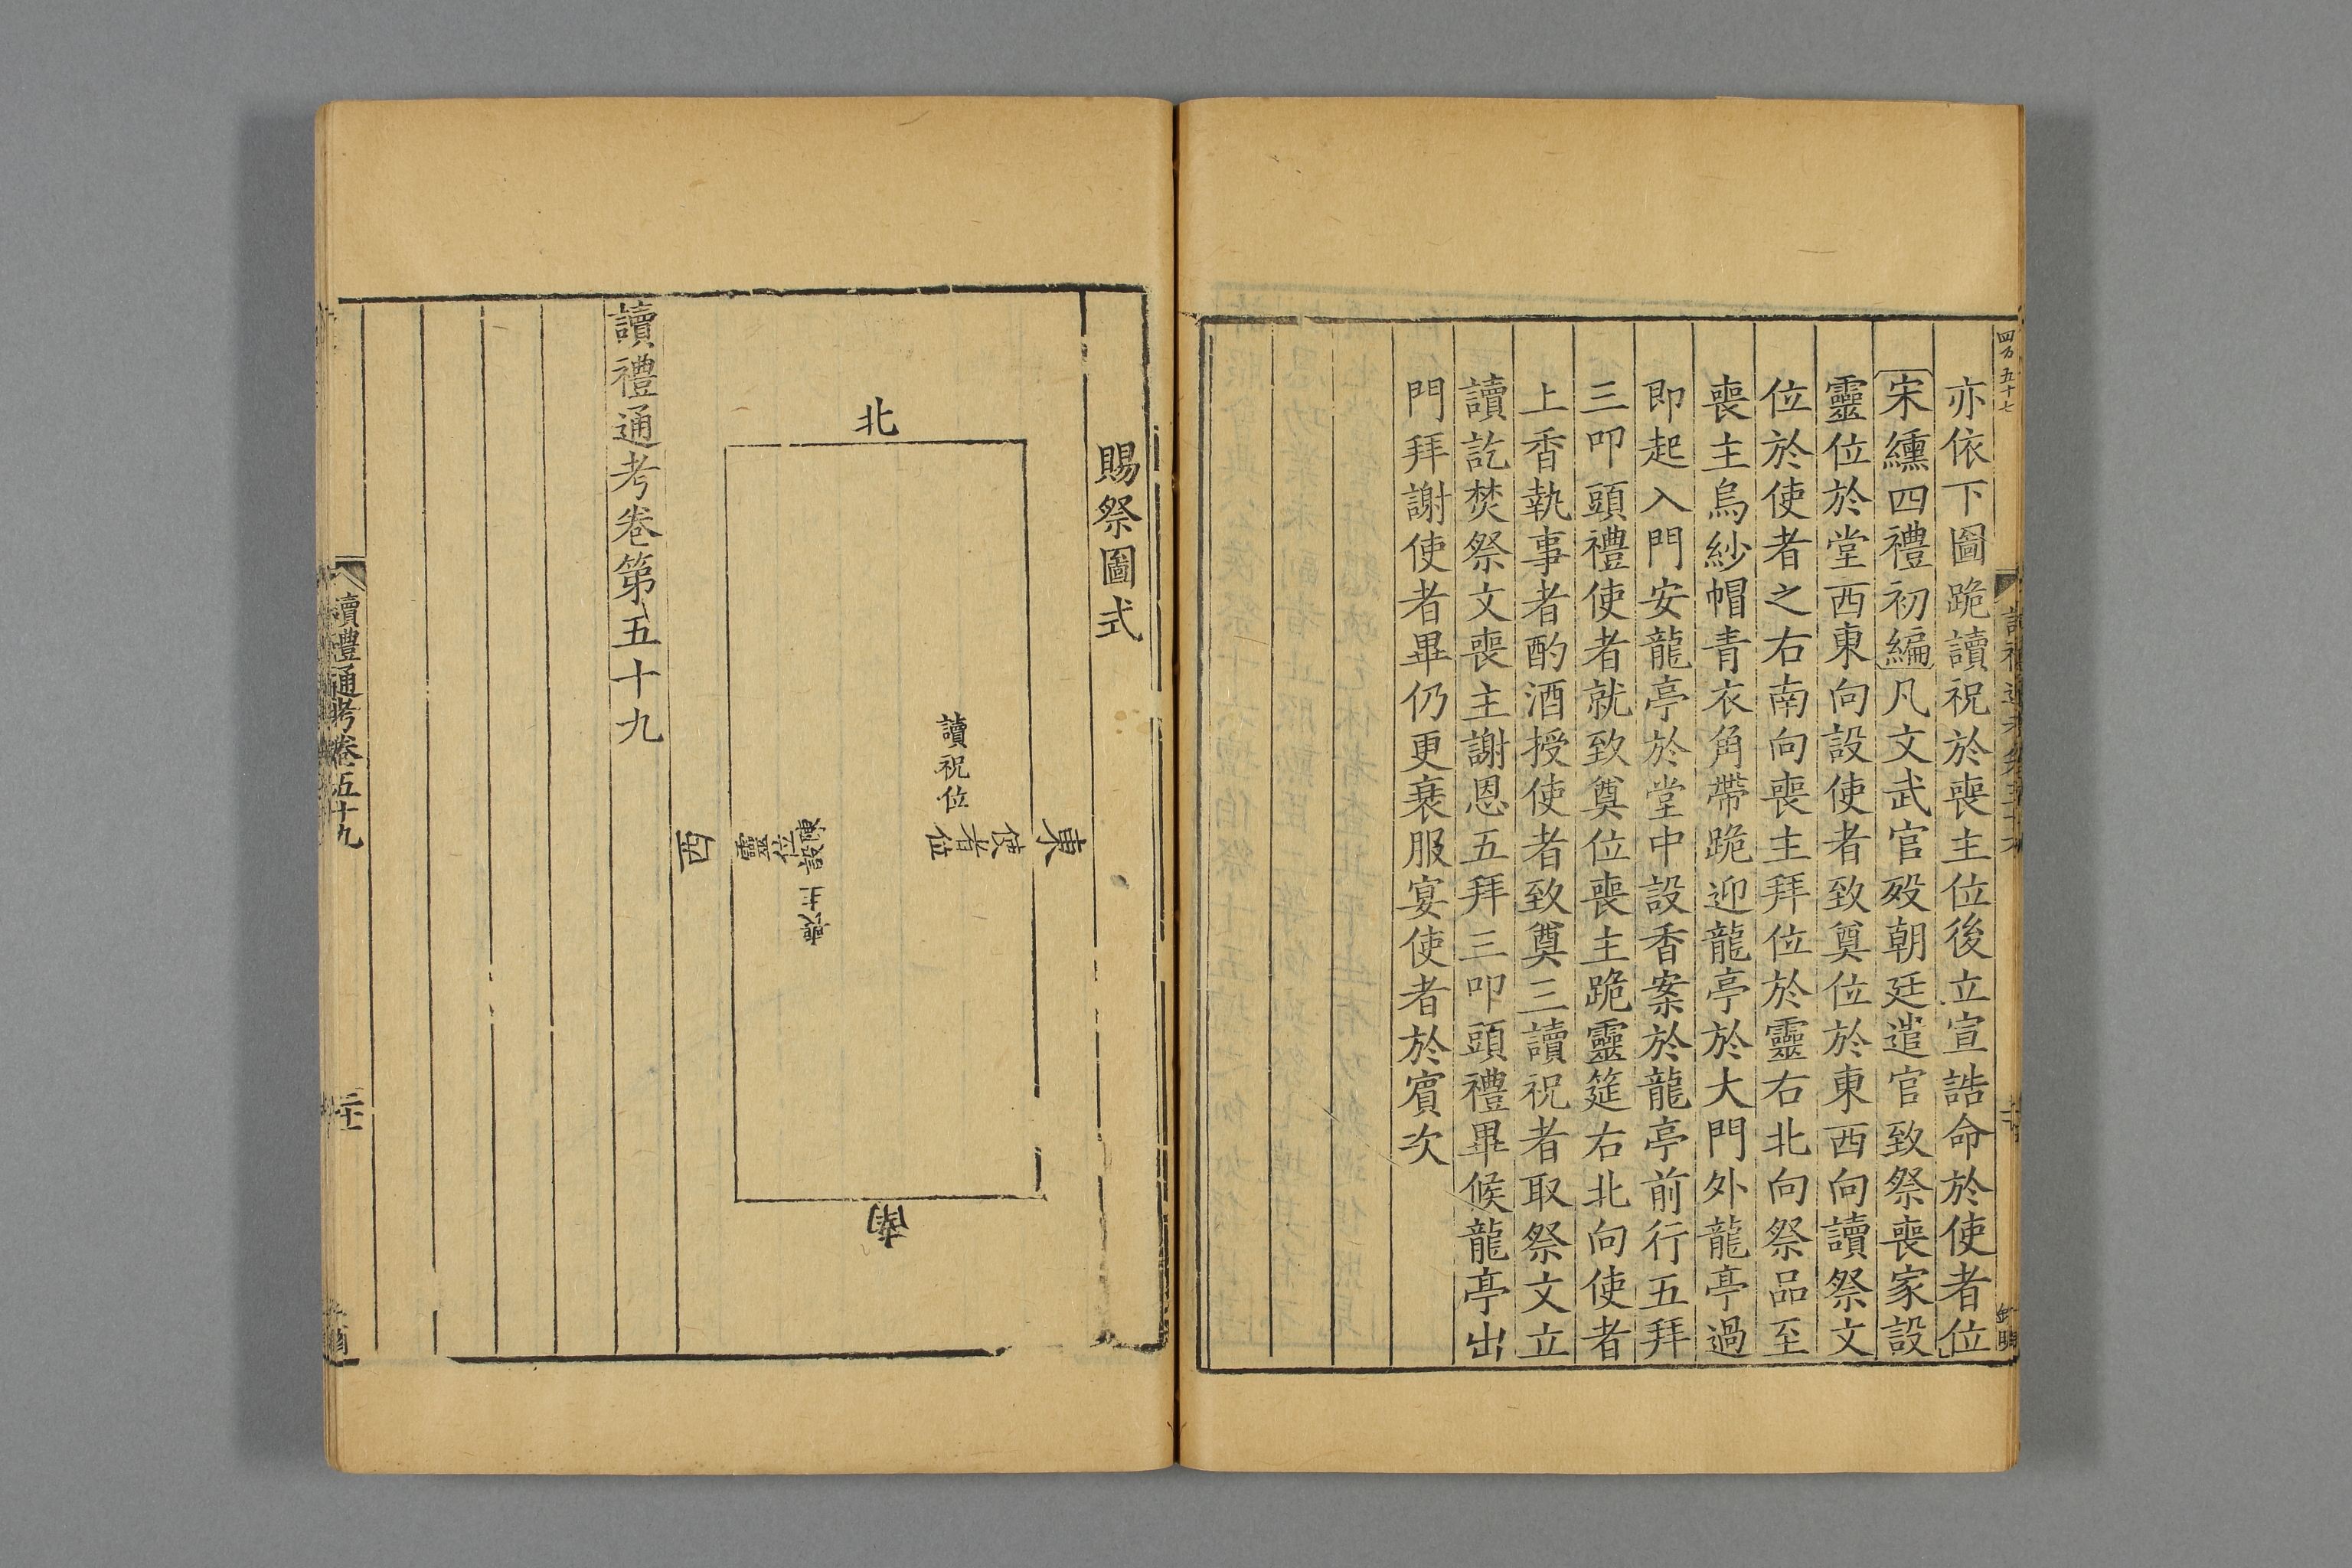 亦依下圖跪讀祝於喪主位後立宣誥命於使者位
宋纁四禮初編凡文武官歿朝廷遣官致祭喪家設
靈位於堂西東向設使者致奠位於東西向讀祭文
位於使者之右南向喪主拜位於靈右北向祭品至
喪主烏紗帽青衣角帶跪迎龍亭於大門外龍亭過
即起入門安龍亭於堂中設香案於龍亭前行五拜
三叩頭禮使者就致奠位喪主跪靈筵右北向使者
上香執事者酌酒授使者致奠三讀祝者取祭文立
讀訖焚祭文喪主謝恩五拜三叩頭禮畢候龍亭出
門拜謝使者畢仍更衰服宴使者於賔次
賜祭圖式
北
東
使者位
讀祝位
陳設
靈位
喪主
西
南
讀禮通考卷第五十九
讀禮通考卷五十九